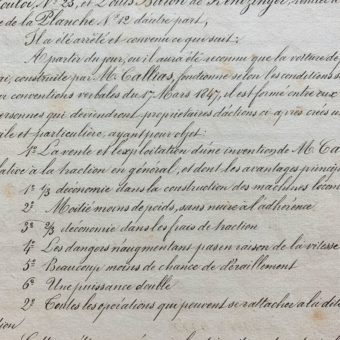 Louis Baron de
de la Planche N° 12 d'autre part,
Il a été arrêté et convenu ce qui suit:
A partir du jour, ou il aura été reconnu que la voiture de
construite par M. Callias, fonctionne selon les conditions
conventions verbales du 17 Mars 1847, il est formé entre eux
personnes qui deviendront propriétaires d'actions ci-après créés
et particulière, ayant pour objet:
1° La vente et l'exploitation d'une invention de M. Ca
relative à la traction en général, et dont les avantages princip
1° 1/3 d'économie dans la construction des machines locom
2° Moitié moins de poids, sans nuire à l'adhérence
3° 2/3 d'économie dans les frais de traction
4° Les dangers n'augmentant pas en raison de la vitesse
5° Beaucoup moins de chance de déraillement
6° Une puissance double
2° Toutes les opérations qui peuvent se rattacher à la dite
tion